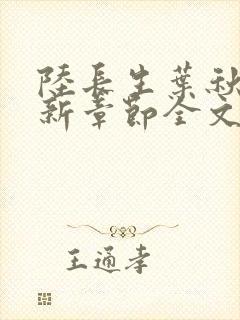 陸長生葉秋
新章節全文
王通孝